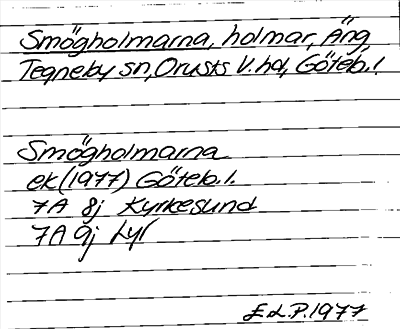 Smögholmarna, holmar, Äng,
Tegneby sn, Orusts V. hd, Göteb. l.
Smögholmarna
ek (1977) Göteb. l.
7A 8j Kyrkesund
7A 9j Lyr
E.L.P. 1977